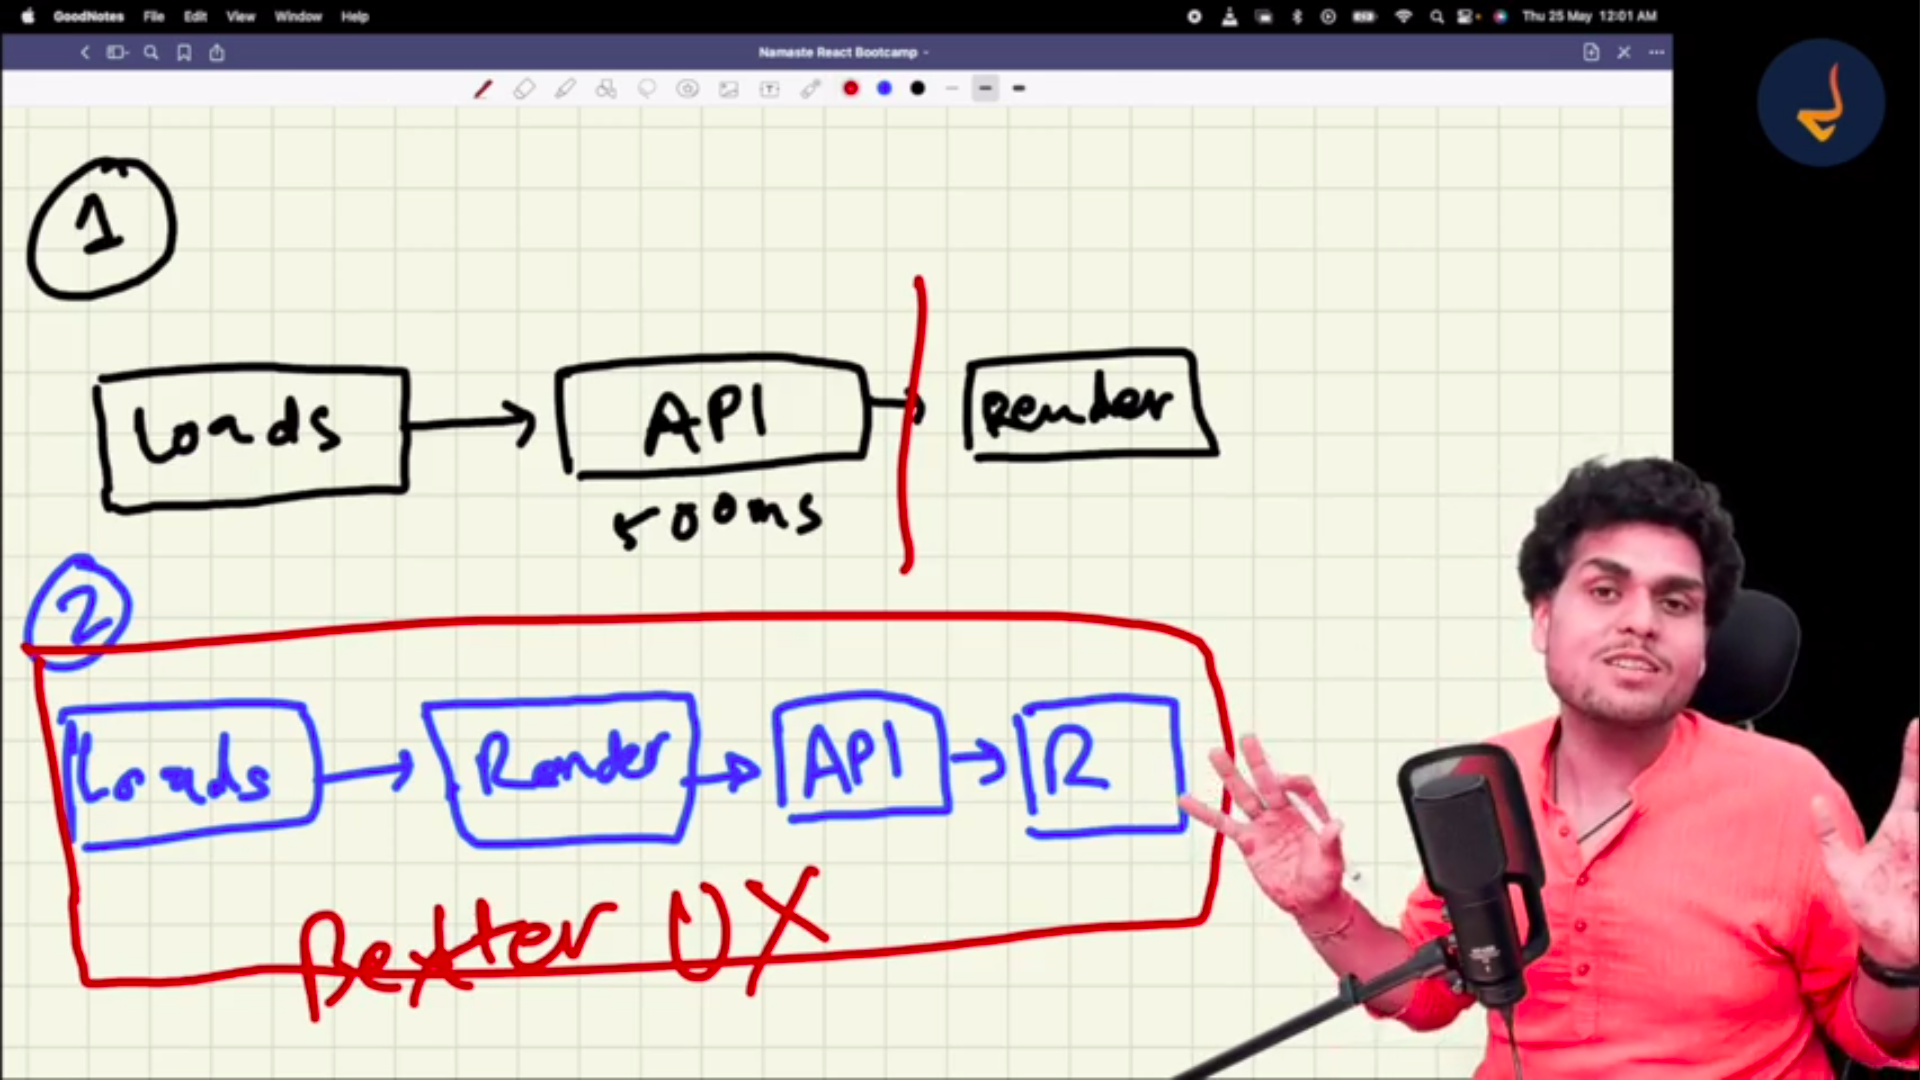 GoodNotes File Edit View Window Help Thu 25 May 12:01 AM
Namaste React Bootcamp
1
Loads API Render
500ms
2
Loads Render API R
Better UX